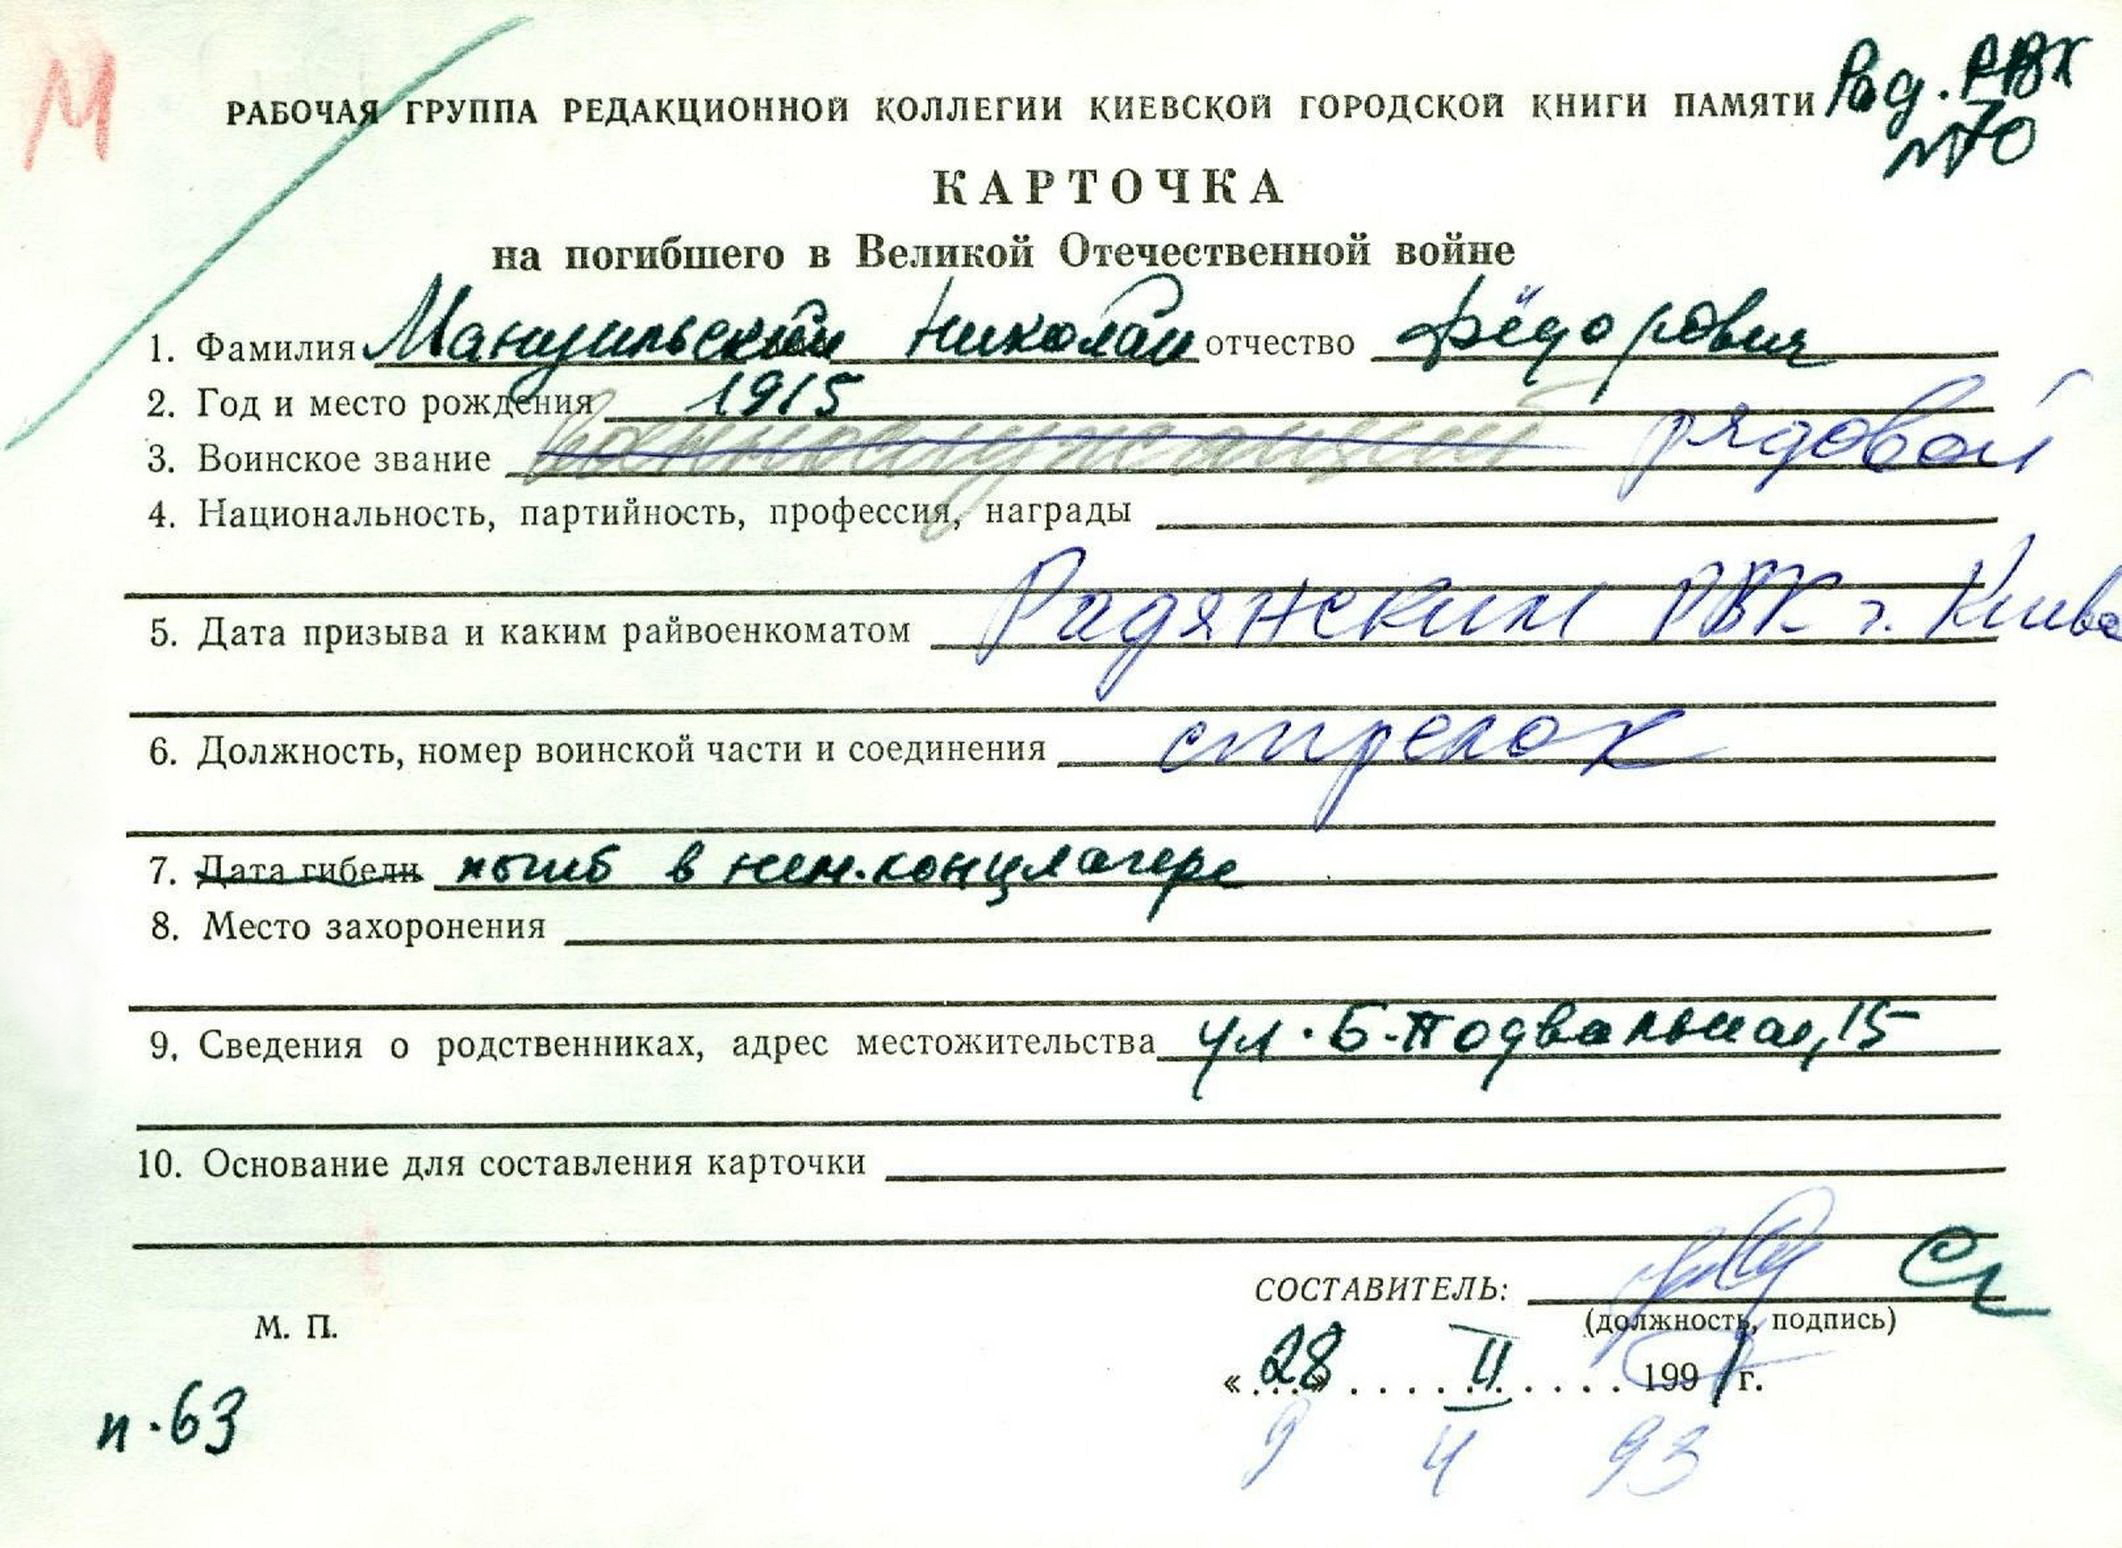 М
Рад. РВК
№70
РАБОЧАЯ ГРУППА РЕДАКЦИОННОЙ КОЛЛЕГИИ КИЕВСКОЙ ГОРОДСКОЙ КНИГИ ПАМЯТИ
КАРТОЧКА
на погибшего в Великой Отечественной войне
1. Фамилия Мануильский Николай отчество Фёдорович
2. Год и место рождения 1915
3. Воинское звание военнослужащий рядовой
4. Национальность, партийность, профессия, награды
5. Дата призыва и каким райвоенкоматом Радянским РВК г. Киева
6. Должность, номер воинской части и соединения стрелок
7. Дата гибели погиб в нем. концлагере
8. Место захоронения
9. Сведения о родственниках, адрес местожительства ул. Б-Подвальная, 15
10. Основание для составления карточки
СОСТАВИТЕЛЬ:
(должность, подпись)
М. П.
«28» II 1991 г.
9 4 93
п. 63